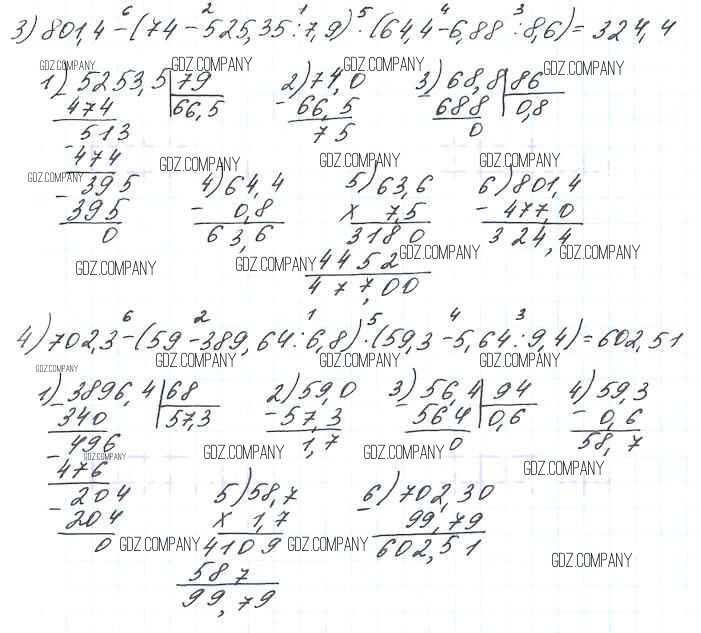 3) 801,4 - (74 - 525,35 : 7,9) · (64,4 - 6,88 : 8,6) = 324,4
6 2 1 5 4 3
GDZ.COMPANY GDZ.COMPANY GDZ.COMPANY GDZ.COMPANY
1) 5253,5 | 79 2) 74,0 3) 68,8 | 86
- 474 66,5 - 66,5 - 688 0,8
513 7 5 0
- 474 GDZ.COMPANY GDZ.COMPANY GDZ.COMPANY
GDZ.COMPANY - 395 4) 64,4 5) 63,6 6) 801,4
395 - 0,8 x 7,5 - 477,0
0 63,6 3180 324,4
GDZ.COMPANY GDZ.COMPANY 4452 GDZ.COMPANY GDZ.COMPANY
477,00
6 2 1 5 4 3
4) 702,3 - (59 - 389,64 : 6,8) · (59,3 - 5,64 : 9,4) = 602,51
GDZ.COMPANY GDZ.COMPANY GDZ.COMPANY GDZ.COMPANY
1) 3896,4 | 68 2) 59,0 3) 56,4 | 94 4) 59,3
- 340 57,3 - 57,3 - 564 0,6 - 0,6
- 496 1,7 0 58,7
476 GDZ.COMPANY GDZ.COMPANY GDZ.COMPANY GDZ.COMPANY
- 204 5) 58,7 6) 702,30
204 x 1,7 - 99,79
0 GDZ.COMPANY 4109 GDZ.COMPANY 602,51 GDZ.COMPANY
587
99,79